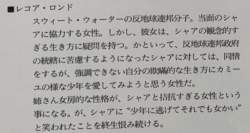 ■レコア・ロンド
スウィート・ウォーターの反地球連邦分子。当面のシャア
に協力する女性。しかし、彼女は、シャアの観念的す
ぎる生き方に疑問を持つ。かといって、反地球連邦政府
の統轄に苦慮するようになったシャアに対しては、同情
をするが、強調できない自分の欺瞞的な生き方にカミー
ユの様な少年を愛してみようと思う女性だ。
姉さん女房的な性格が、シャアと拮抗すぎる女性とい
う事になる。が、シャアに"少年に逃げてそれでも女かい"
と笑われたことを終生恨み続ける。